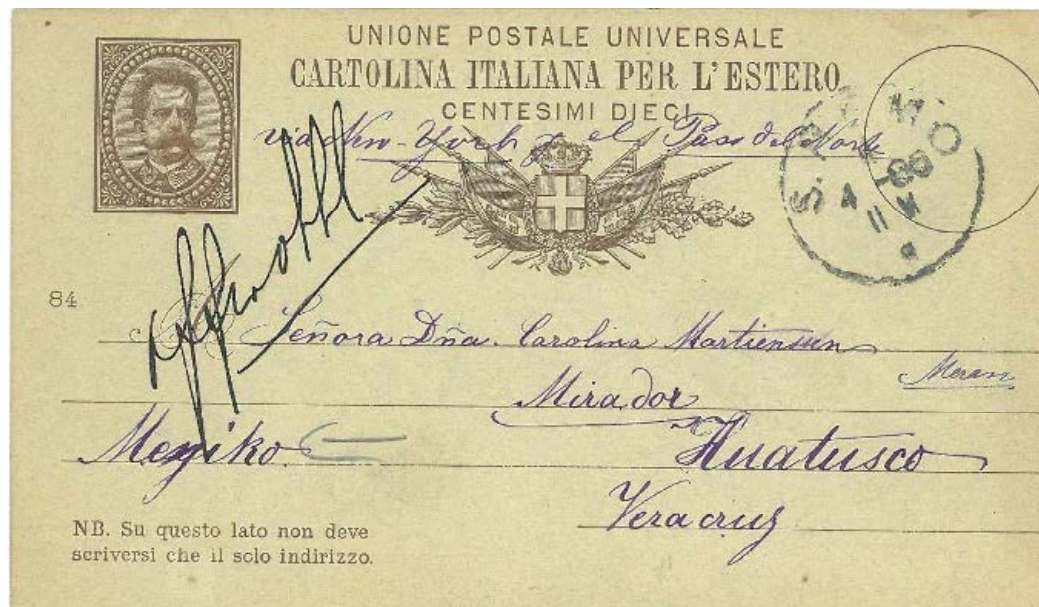 UNIONE POSTALE UNIVERSALE
CARTOLINA ITALIANA PER L'ESTERO
CENTESIMI DIECI
via New-York y el Paso del Norte
84
Señora Dña. Carolina Martiensen
Meran
Mirador
Mexiko
Huatusco
Veracruz
NB. Su questo lato non deve
scriversi che il solo indirizzo.